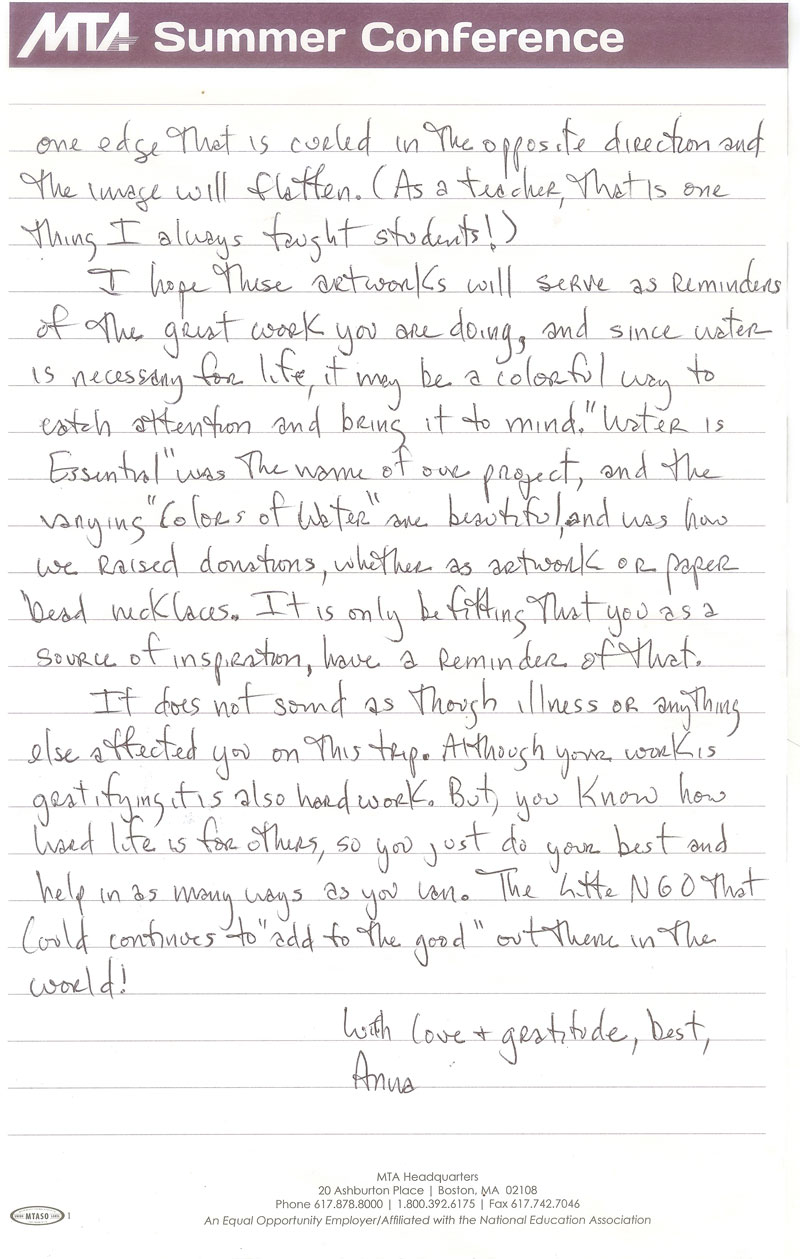 MTA Summer Conference
one edge that is curled in the opposite direction and
the image will flatten. (As a teacher, that is one
thing I always taught students!)
I hope these artworks will serve as reminders
of the great work you are doing, and since water
is necessary for life, it may be a colorful way to
catch attention and bring it to mind. "Water is
Essential" was the name of our project, and the
varying "Colors of Water" are beautiful, and was how
we raised donations, whether as artwork or paper
bead necklaces. It is only befitting that you as a
source of inspiration, have a reminder of that.
It does not sound as though illness or anything
else affected you on this trip. Although your work is
gratifying it is also hard work. But, you know how
hard life is for others, so you just do your best and
help in as many ways as you can. The Little NGO that
Could continues to "add to the good" out there in the
world!
With love + gratitude, best,
Anna
MTA Headquarters
20 Ashburton Place | Boston, MA 02108
Phone 617.878.8000 | 1.800.392.6175 | Fax 617.742.7046
An Equal Opportunity Employer/Affiliated with the National Education Association
MTASO 1